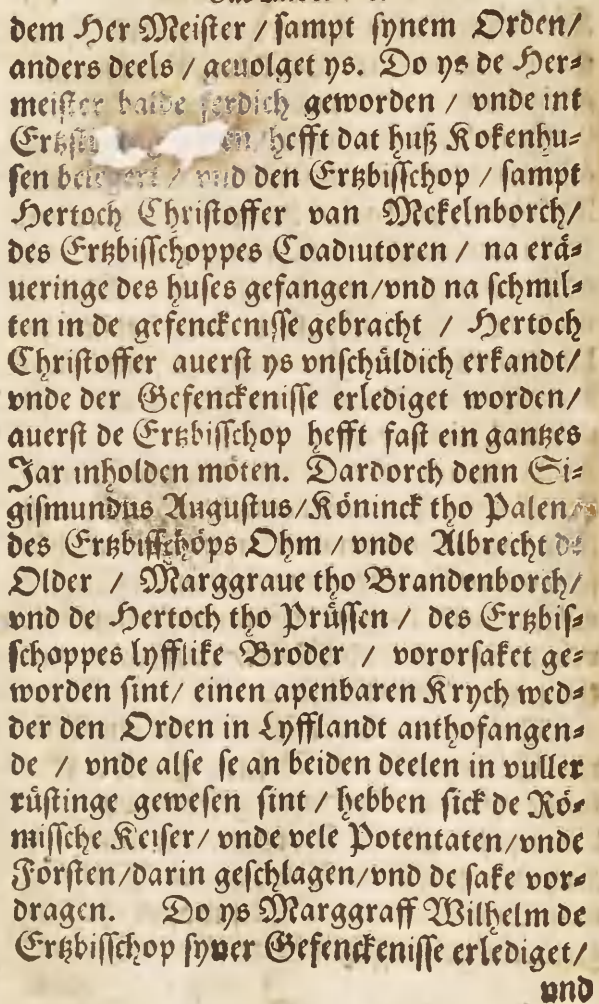 dem Her Meister / sampt synem Orden/
anders deels / geuolget ys. Do ys de Her⸗
meister balde ferdich geworden / vnde int
Ertzsti hefft dat huß Kokenhu⸗
sen belegert / vnd den Ertzbisschop / sampt
Hertoch Christoffer van Mekelnborch/
des Ertzbisschoppes Coadiutoren / na erå⸗
ueringe des huses gefangen/vnd na schmil⸗
ten in de gefenckenisse gebracht / Hertoch
Christoffer auerst ys vnschůldich erkandt/
vnde der Gefenckenisse erlediget worden/
auerst de Ertzbisschop hefft fast ein gantzes
Jar inholden móten. Dardorch denn Si⸗
gismundus Augustus/Kóninck tho Palen/
des Ertzbisschóps Ohm / vnde Albrecht de
Older / Marggraue tho Brandenborch/
vnd de Hertoch tho Průssen / des Ertzbis⸗
schoppes lyfflike Broder / vororsaket ge⸗
worden sint/ einen apenbaren Krych wed⸗
der den Orden in Lyfflandt anthofangen⸗
de / vnde alse se an beiden deelen in vuller
růstinge gewesen sint / hebben sick de Ró⸗
missche Keiser/ vnde vele Potentaten/vnde
Fórsten/darin geschlagen/vnd de sake vor⸗
dragen. Do ys Marggraff Wilhelm de
Ertzbisschop syner Gefenckenisse erlediget/
vnd